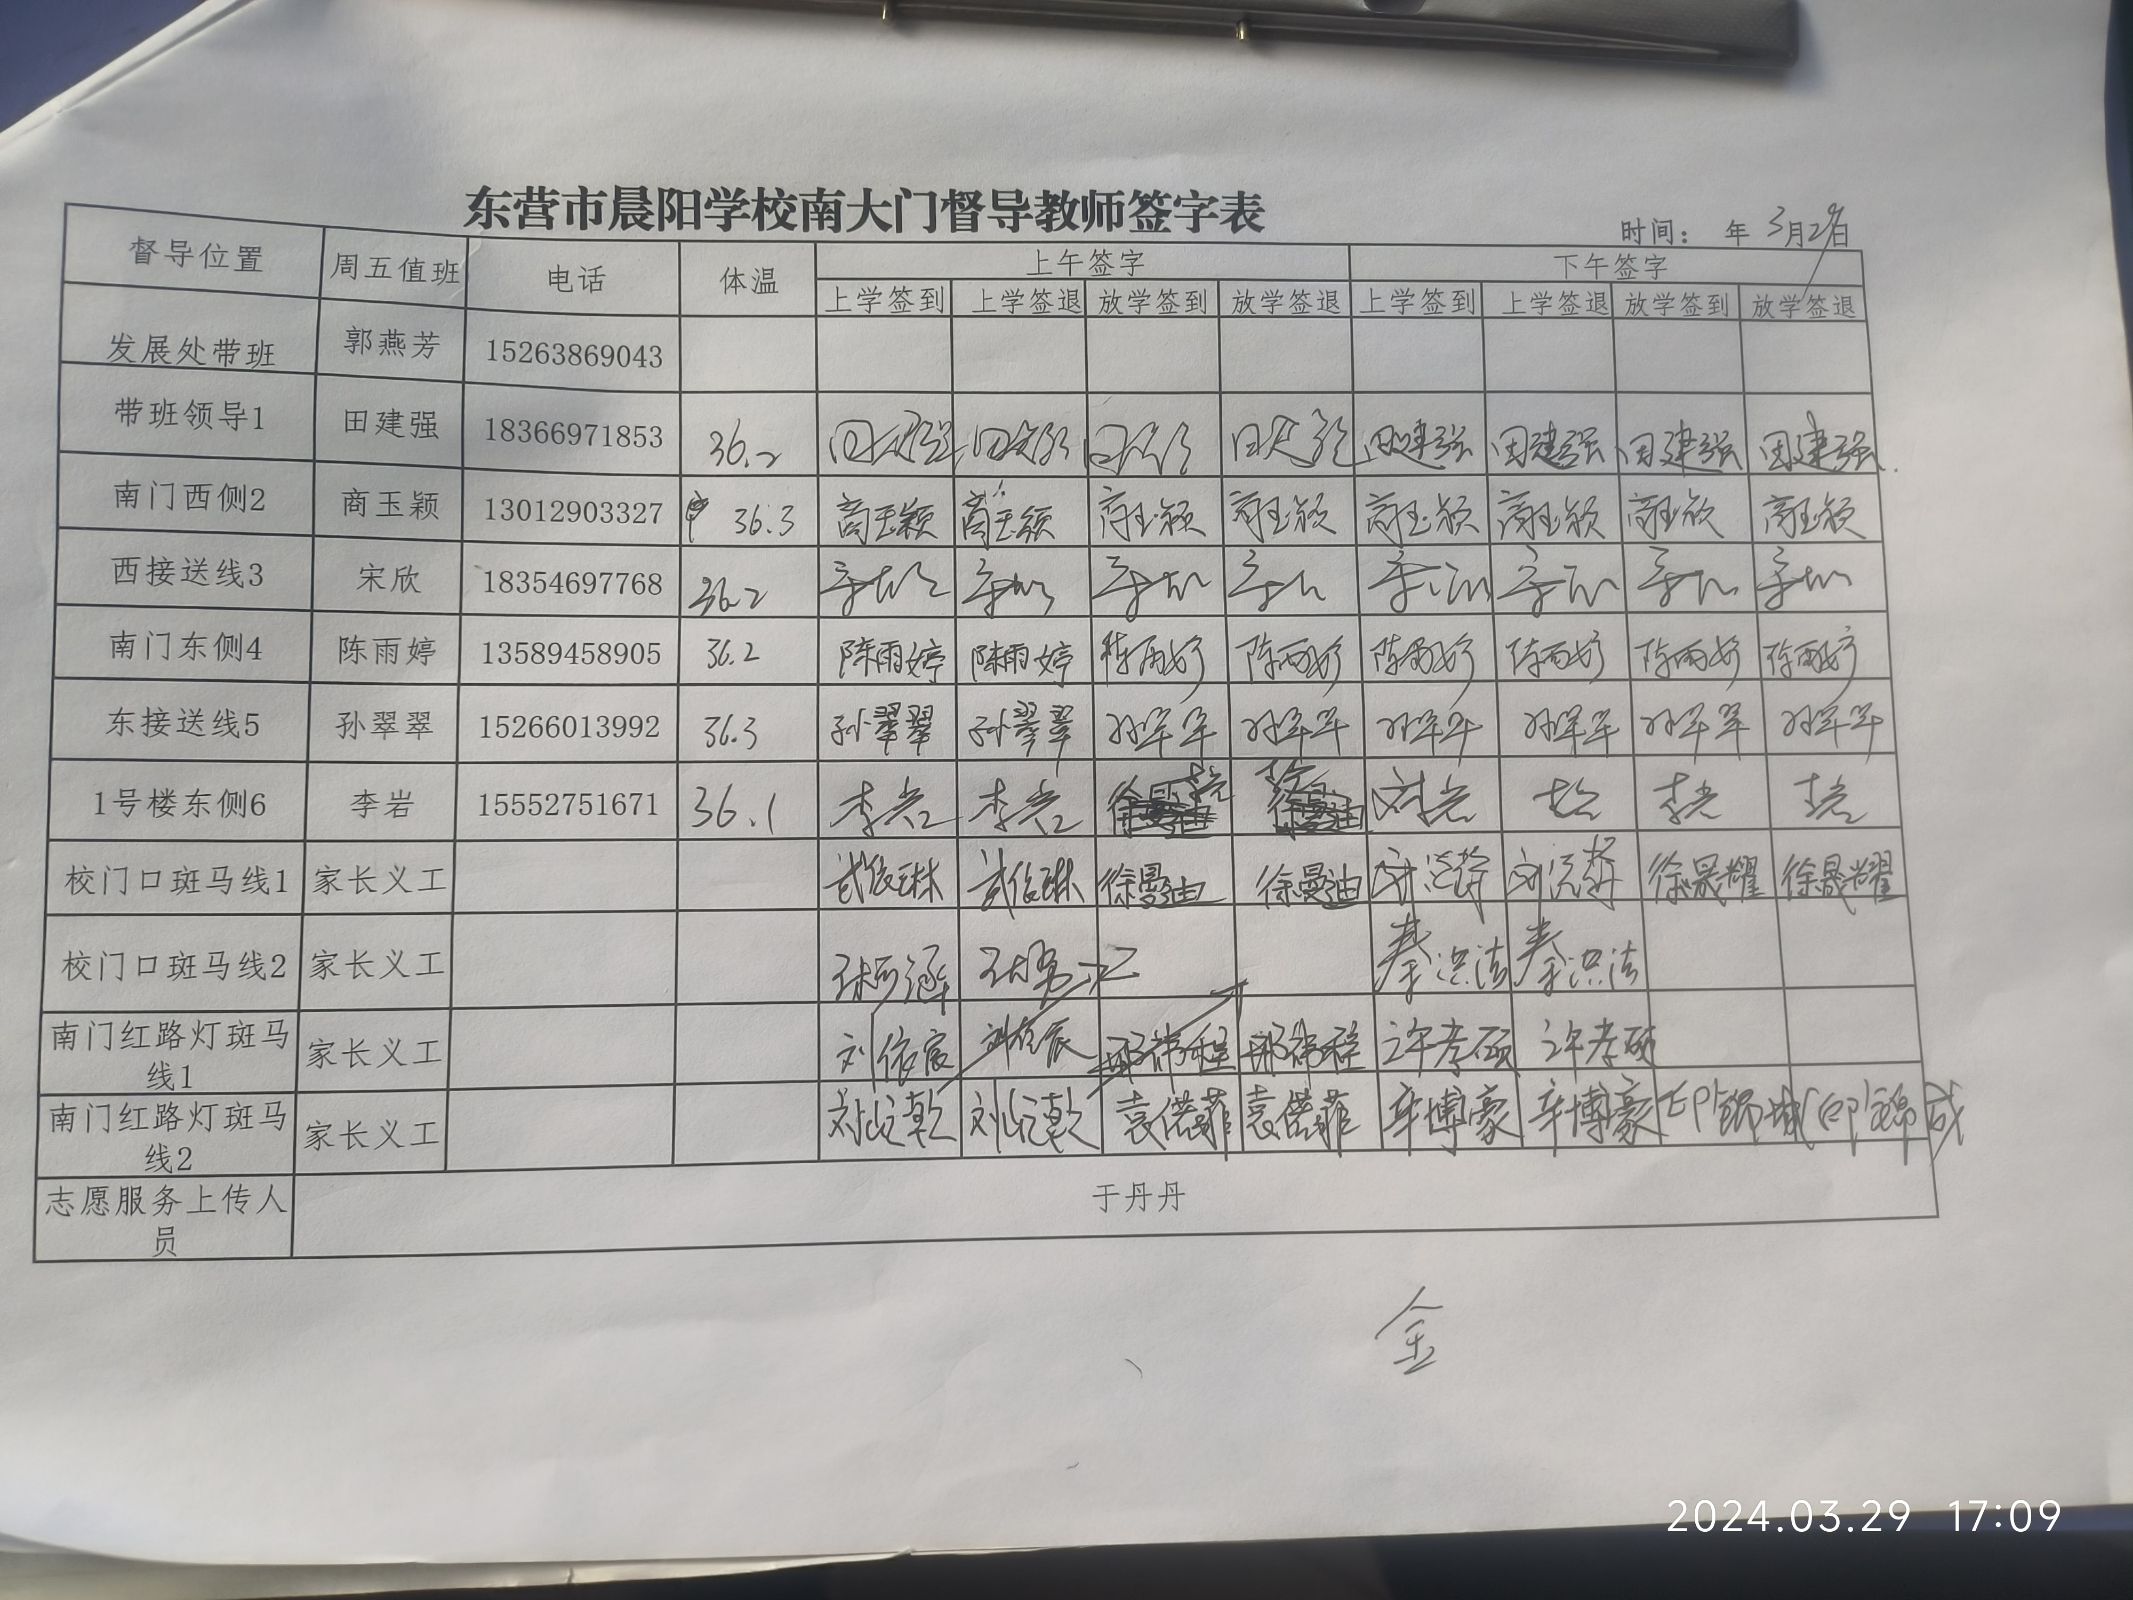 东营市晨阳学校南大门督导教师签字表
时间： 年 3月29日
督导位置 周五值班 电话 体温 上午签字 下午签字
上学签到 上学签退 放学签到 放学签退 上学签到 上学签退 放学签到 放学签退
发展处带班 郭燕芳 15263869043
带班领导1 田建强 18366971853 36.2 田建强 田建强 田建强 田建强 田建强
南门西侧2 商玉颖 13012903327 36.3 商玉颖 商玉颖 商玉颖 商玉颖 商玉颖 商玉颖 商玉颖 商玉颖
西接送线3 宋欣 18354697768 36.2
南门东侧4 陈雨婷 13589458905 36.2 陈雨婷 陈雨婷 陈雨婷 陈雨婷 陈雨婷 陈雨婷 陈雨婷 陈雨婷
东接送线5 孙翠翠 15266013992 36.3 孙翠翠 孙翠翠 孙翠翠 孙翠翠 孙翠翠 孙翠翠 孙翠翠 孙翠翠
1号楼东侧6 李岩 15552751671 36.1 李岩 李岩 李岩 李岩
校门口斑马线1 家长义工 武俊琳 武俊琳 徐曼迪 徐曼迪 徐晟耀 徐晟耀
校门口斑马线2 家长义工 秦洪法 秦洪法
南门红路灯斑马
线1 家长义工 刘依宸 刘依宸 邢祎程 邢祎程 许孝硕 许孝硕
南门红路灯斑马
线2 家长义工 袁偌菲 袁偌菲 辛博豪 辛博豪
志愿服务上传人
员 于丹丹
金
2024.03.29 17:09